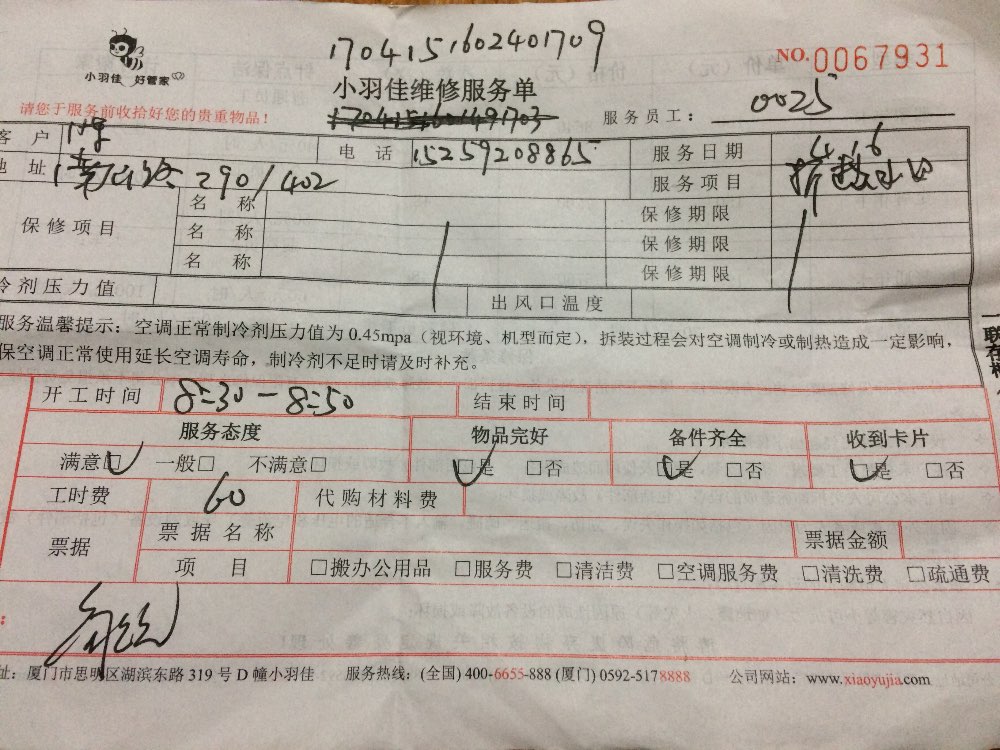 1704151602401709
小羽佳 好管家
NO.0067931
小羽佳维修服务单
请您于服务前收拾好您的贵重物品！
服务员工： 0025
客户 电话 15259208865 服务日期 4.16
地址 290/402 服务项目
保修项目 名称 保修期限
名称 保修期限
名称 保修期限
冷剂压力值 出风口温度
服务温馨提示：空调正常制冷剂压力值为 0.45mpa（视环境、机型而定），拆装过程会对空调制冷或制热造成一定影响，
保空调正常使用延长空调寿命，制冷剂不足时请及时补充。
开工时间 8:30-8:50 结束时间
服务态度 物品完好 备件齐全 收到卡片
满意□ 一般□ 不满意□ □是 □否 □是 □否 □是 □否
工时费 60 代购材料费
票据 票据名称 票据金额
项目 □搬办公用品 □服务费 □清洁费 □空调服务费 □清洗费 □疏通费
址：厦门市思明区湖滨东路 319 号 D 幢小羽佳 服务热线：(全国) 400-6655-888 (厦门) 0592-5178888 公司网站：www.xiaoyujia.com